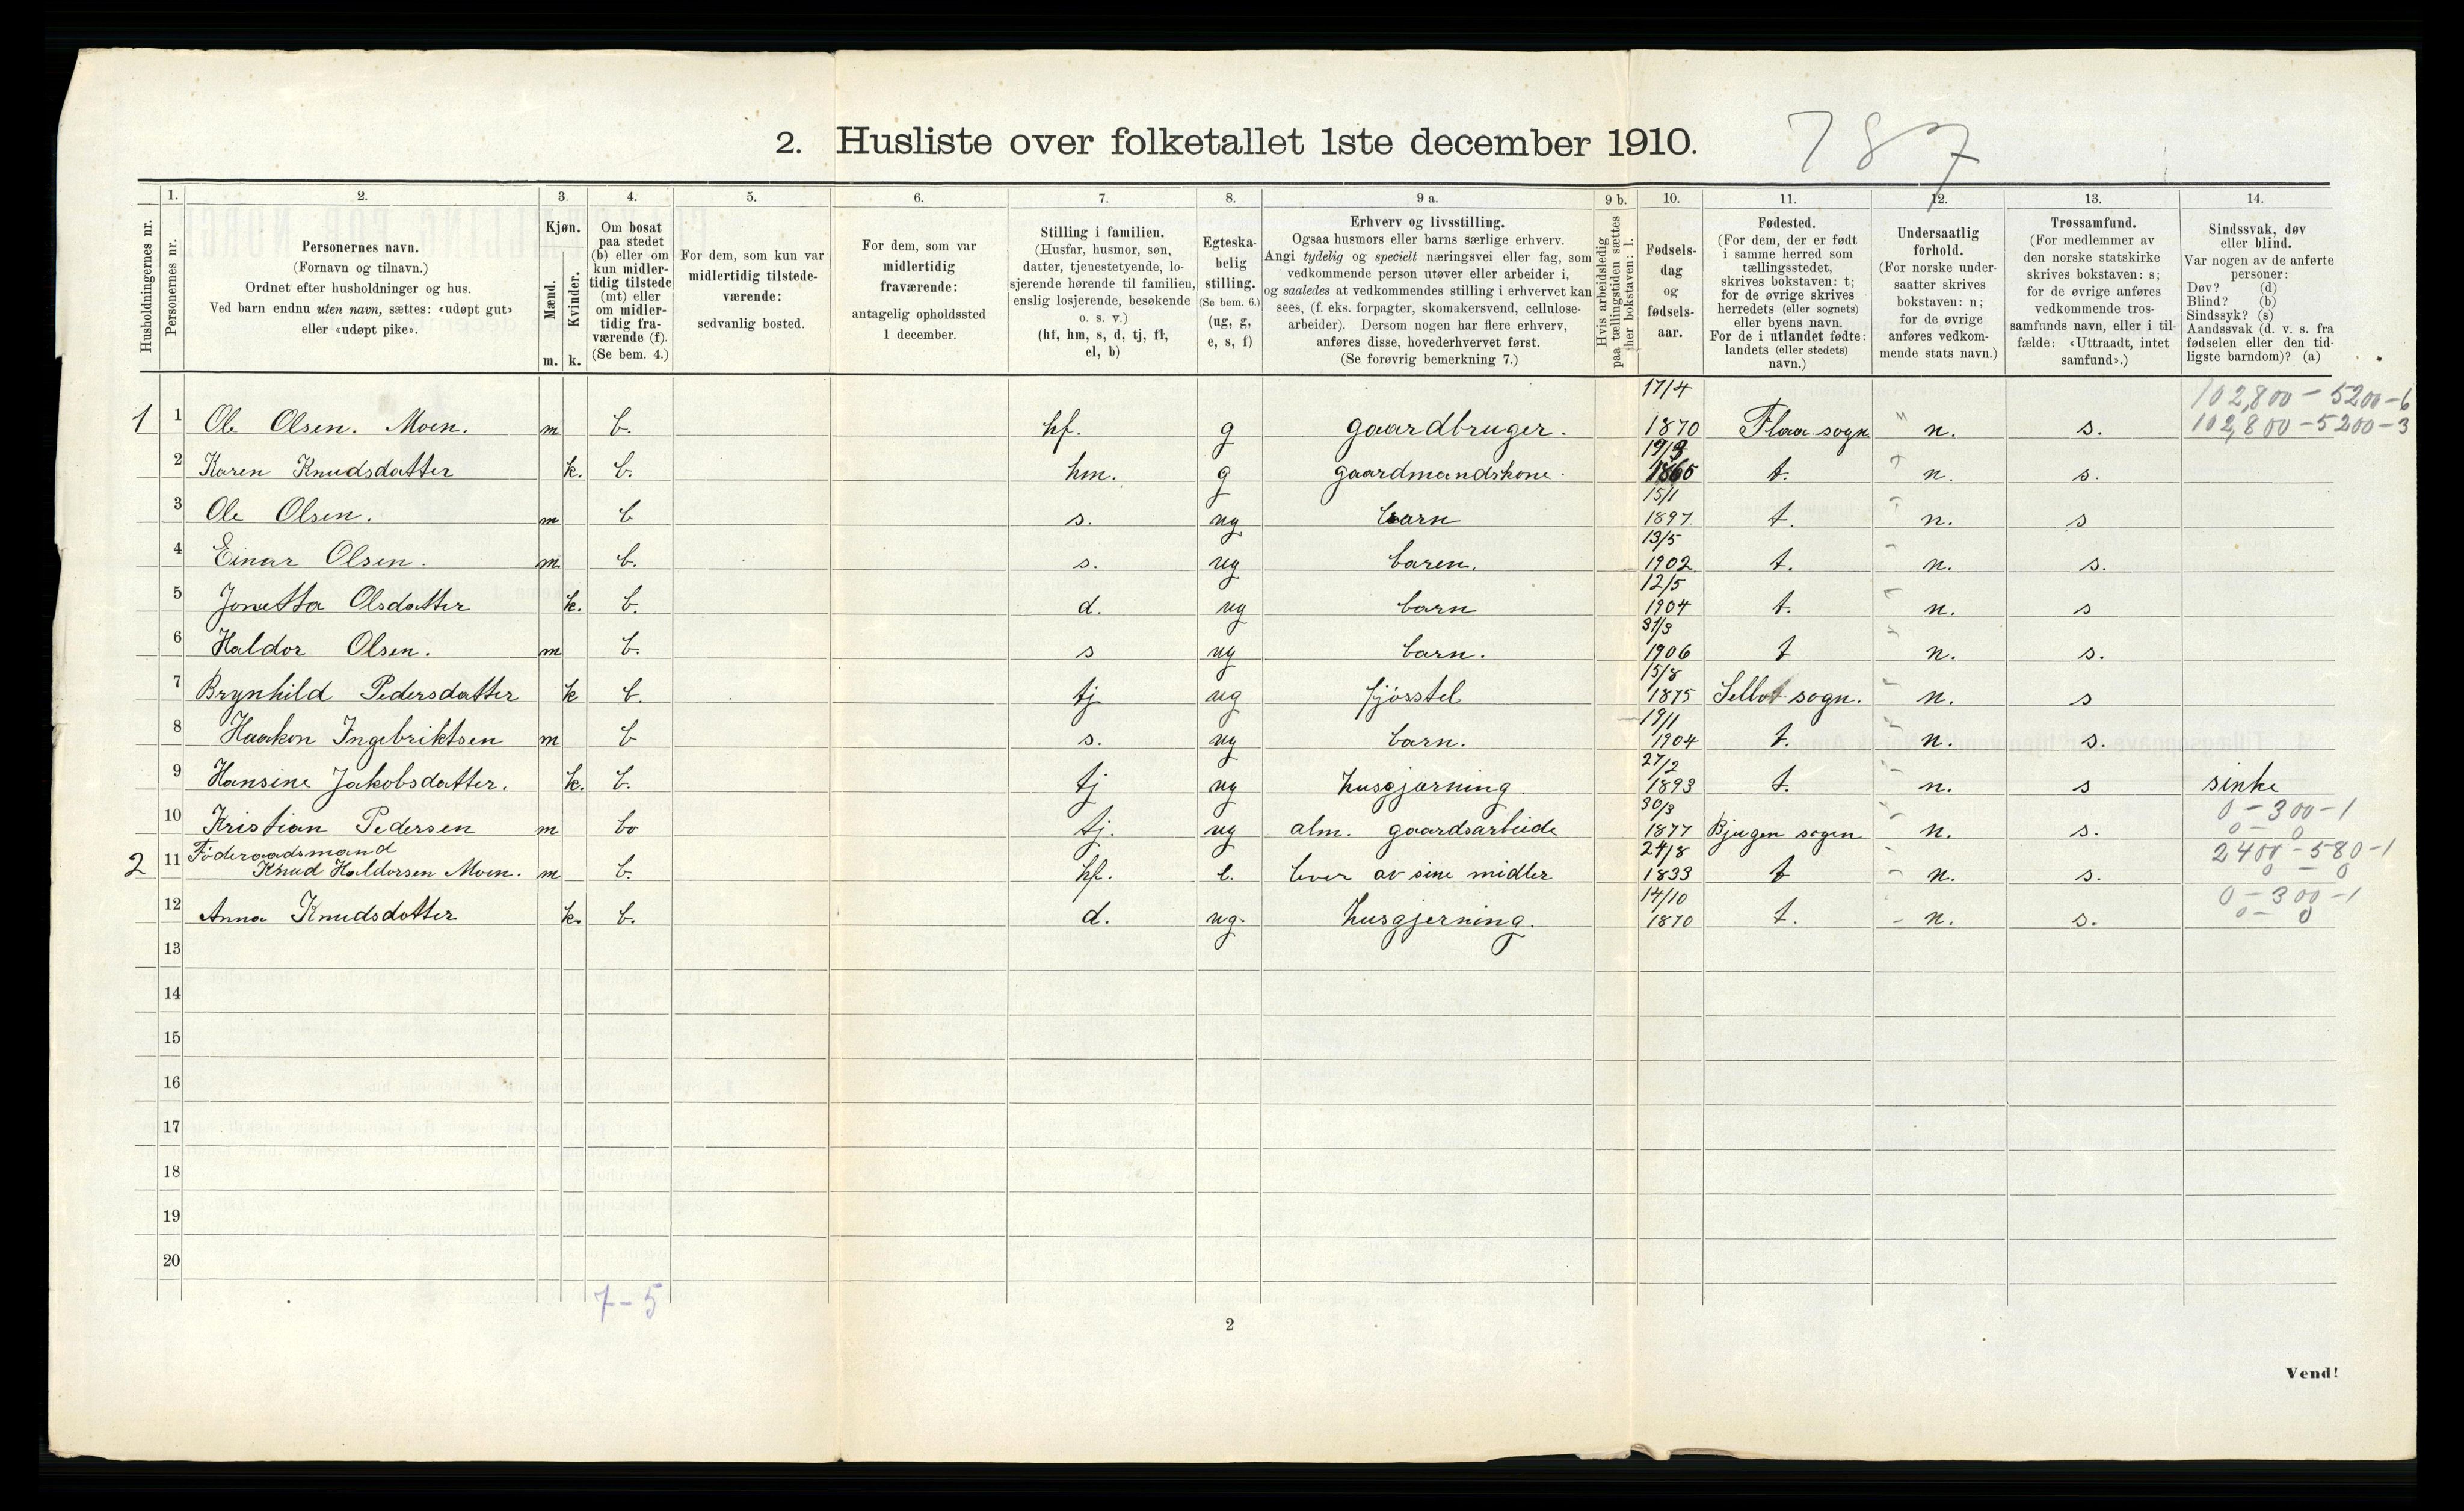 2. Husliste over folketallet 1ste december 1910.
787
1. 2. 3. 4. 5. 6. 7. 8. 9 a. 9 b. 10. 11. 12. 13. 14.
Husholdningernes nr.
Personernes nr.
Personernes navn.
(Fornavn og tilnavn.)
Ordnet efter husholdninger og hus.
Ved barn endnu uten navn, sættes: «udøpt gut»
eller «udøpt pike».
Kjøn.
Mænd.
Kvinder.
m. k.
Om bosat
paa stedet
(b) eller om
kun midler-
tidig tilstede
(mt) eller
om midler-
tidig fra-
værende (f).
(Se bem. 4.)
For dem, som kun var
midlertidig tilstede-
værende:
sedvanlig bosted.
For dem, som var
midlertidig
fraværende:
antagelig opholdssted
1 december.
Stilling i familien.
(Husfar, husmor, søn,
datter, tjenestetyende, lo-
sjerende hørende til familien,
enslig losjerende, besøkende
o. s. v.)
(hf, hm, s, d, tj, fl,
el, b)
Egteska-
belig
stilling.
(Se bem. 6.)
(ug, g,
e, s, f)
Erhverv og livsstilling.
Ogsaa husmors eller barns særlige erhverv.
Angi tydelig og specielt næringsvei eller fag, som
vedkommende person utøver eller arbeider i,
og saaledes at vedkommendes stilling i erhvervet kan
sees, (f. eks. forpagter, skomakersvend, cellulose-
arbeider). Dersom nogen har flere erhverv,
anføres disse, hovederhvervet først.
(Se forøvrig bemerkning 7.)
Hvis arbeidsledig
paa tællingstiden sættes
her bokstaven: l.
Fødsels-
dag
og
fødsels-
aar.
Fødested.
(For dem, der er født
i samme herred som
tællingsstedet,
skrives bokstaven: t;
for de øvrige skrives
herredets (eller sognets)
eller byens navn.
For de i utlandet fødte:
landets (eller stedets)
navn.)
Undersaatlig
forhold.
(For norske under-
saatter skrives
bokstaven: n;
for de øvrige
anføres vedkom-
mende stats navn.)
Trossamfund.
(For medlemmer av
den norske statskirke
skrives bokstaven: s;
for de øvrige anføres
vedkommende tros-
samfunds navn, eller i til-
fælde: «Uttraadt, intet
samfund».)
Sindssvak, døv
eller blind.
Var nogen av de anførte
personer:
Døv? (d)
Blind? (b)
Sindssyk? (s)
Aandssvak (d. v. s. fra
fødselen eller den tid-
ligste barndom)? (a)
17/4 102,800-5200-6
1 1 Ole Olsen. Moen. m b. hf. g gaardbruger. 1870 Flaa sogn. n. s. 102,800-5200-3
19/9
2 Karen Knudsdatter k. b. hm. g gaardmandskone. 1865 t. n. s.
15/1
3 Ole Olsen. m b s. ug barn 1897 t. n. s
13/5
4 Einar Olsen. m. b. s. ug baren. 1902. t. n. s.
12/5
5 Jonetta Olsdatter k. b. d. ug barn 1904 t. n. s
31/3
6 Haldor Olsen. m b. s ug barn. 1906 t n. s.
15/8
7 Brynhild Pedersdatter k b. tj ug fjösstel 1875 Selbo sogn. n. s
19/1
8 Haakon Ingebriktsen m b s. ug barn. 1904 t. n. s.
27/2
9 Hansine Jakobsdatter. k. b. tj ug husgjørning 1893 t. n. s sinke
30/3 0-300-1
10 Kristian Pedersen m bo tj. ug alm. gaardsarbeide 1877 Bjugen sogen n. s. 0-0
Föderaadsmand 24/8 2400-580-1
2 11 Knud Haldorsen Moen. m b. hf. e. lever av sine midler 1833 t n. s. 0-0
14/10 0-300-1
12 Anna Knudsdotter k. b. d. ug. husgjerning. 1870 t. n. s. 0-0
13
14
15
16
17
18
19
20
7-5
2
Vend!